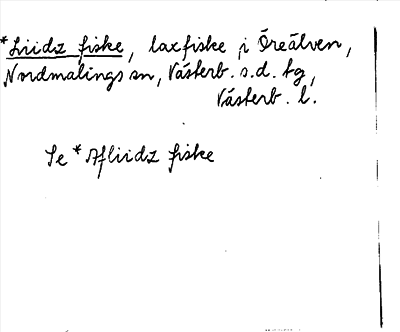 *Liidz fiske, laxfiske i Öreälven,
Nordmalings sn, Västerb. s.d. tg,
Västerb. l.
Se *Afliidz fiske